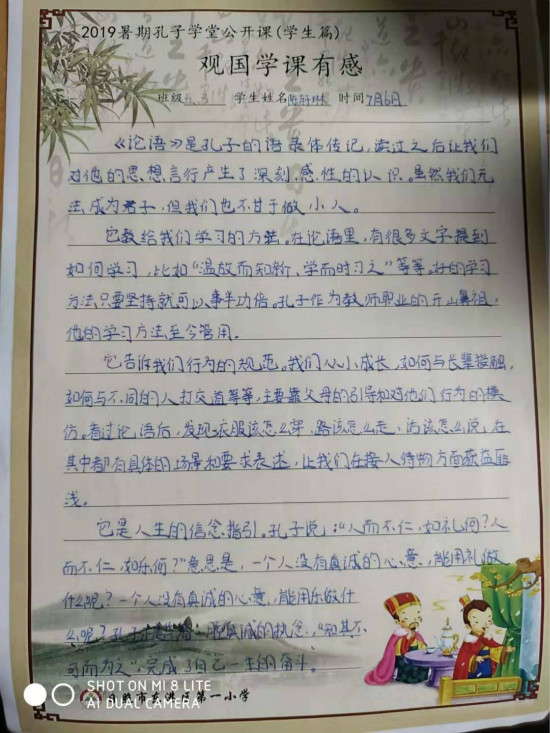 2019暑期孔子学堂公开课(学生篇)
观国学课有感
班级 学生姓名 时间 7月6日
《论语》是孔子的语录体传记,读过之后让我们
对他的思想言行产生了深刻、感性的认识。虽然我们无
法成为君子,但我们也不甘于做小人。
它教给我们学习的方法。在论语里,有很多文字提到
如何学习,比如“温故而知新、学而时习之”等等。好的学习
方法只要坚持就可以事半功倍。孔子作为教师职业的开山鼻祖,
他的学习方法至今管用。
它告诉我们行为的规范。我们从小成长,如何与长辈接触,
如何与不同的人打交道等等,主要靠父母的引导和对他们行为的模
仿。看过论语后,发现衣服该怎么穿,路该怎么走,话该怎么说,在
其中都有具体的场景和要求表述,让我们在接人待物方面获益匪
浅。
它是人生的信念指引。孔子说:“人而不仁,如礼何?人
而不仁,如乐何?”意思是,一个人没有真诚的心意,能用礼做
什么呢?一个人没有真诚的心意,能用乐做什
么呢?孔子 真诚的执念,“知其不
可而为之”,完成了自己一生的奋斗。
SHOT ON MI 8 LITE
AI DUAL CAMERA
市 区第一小学